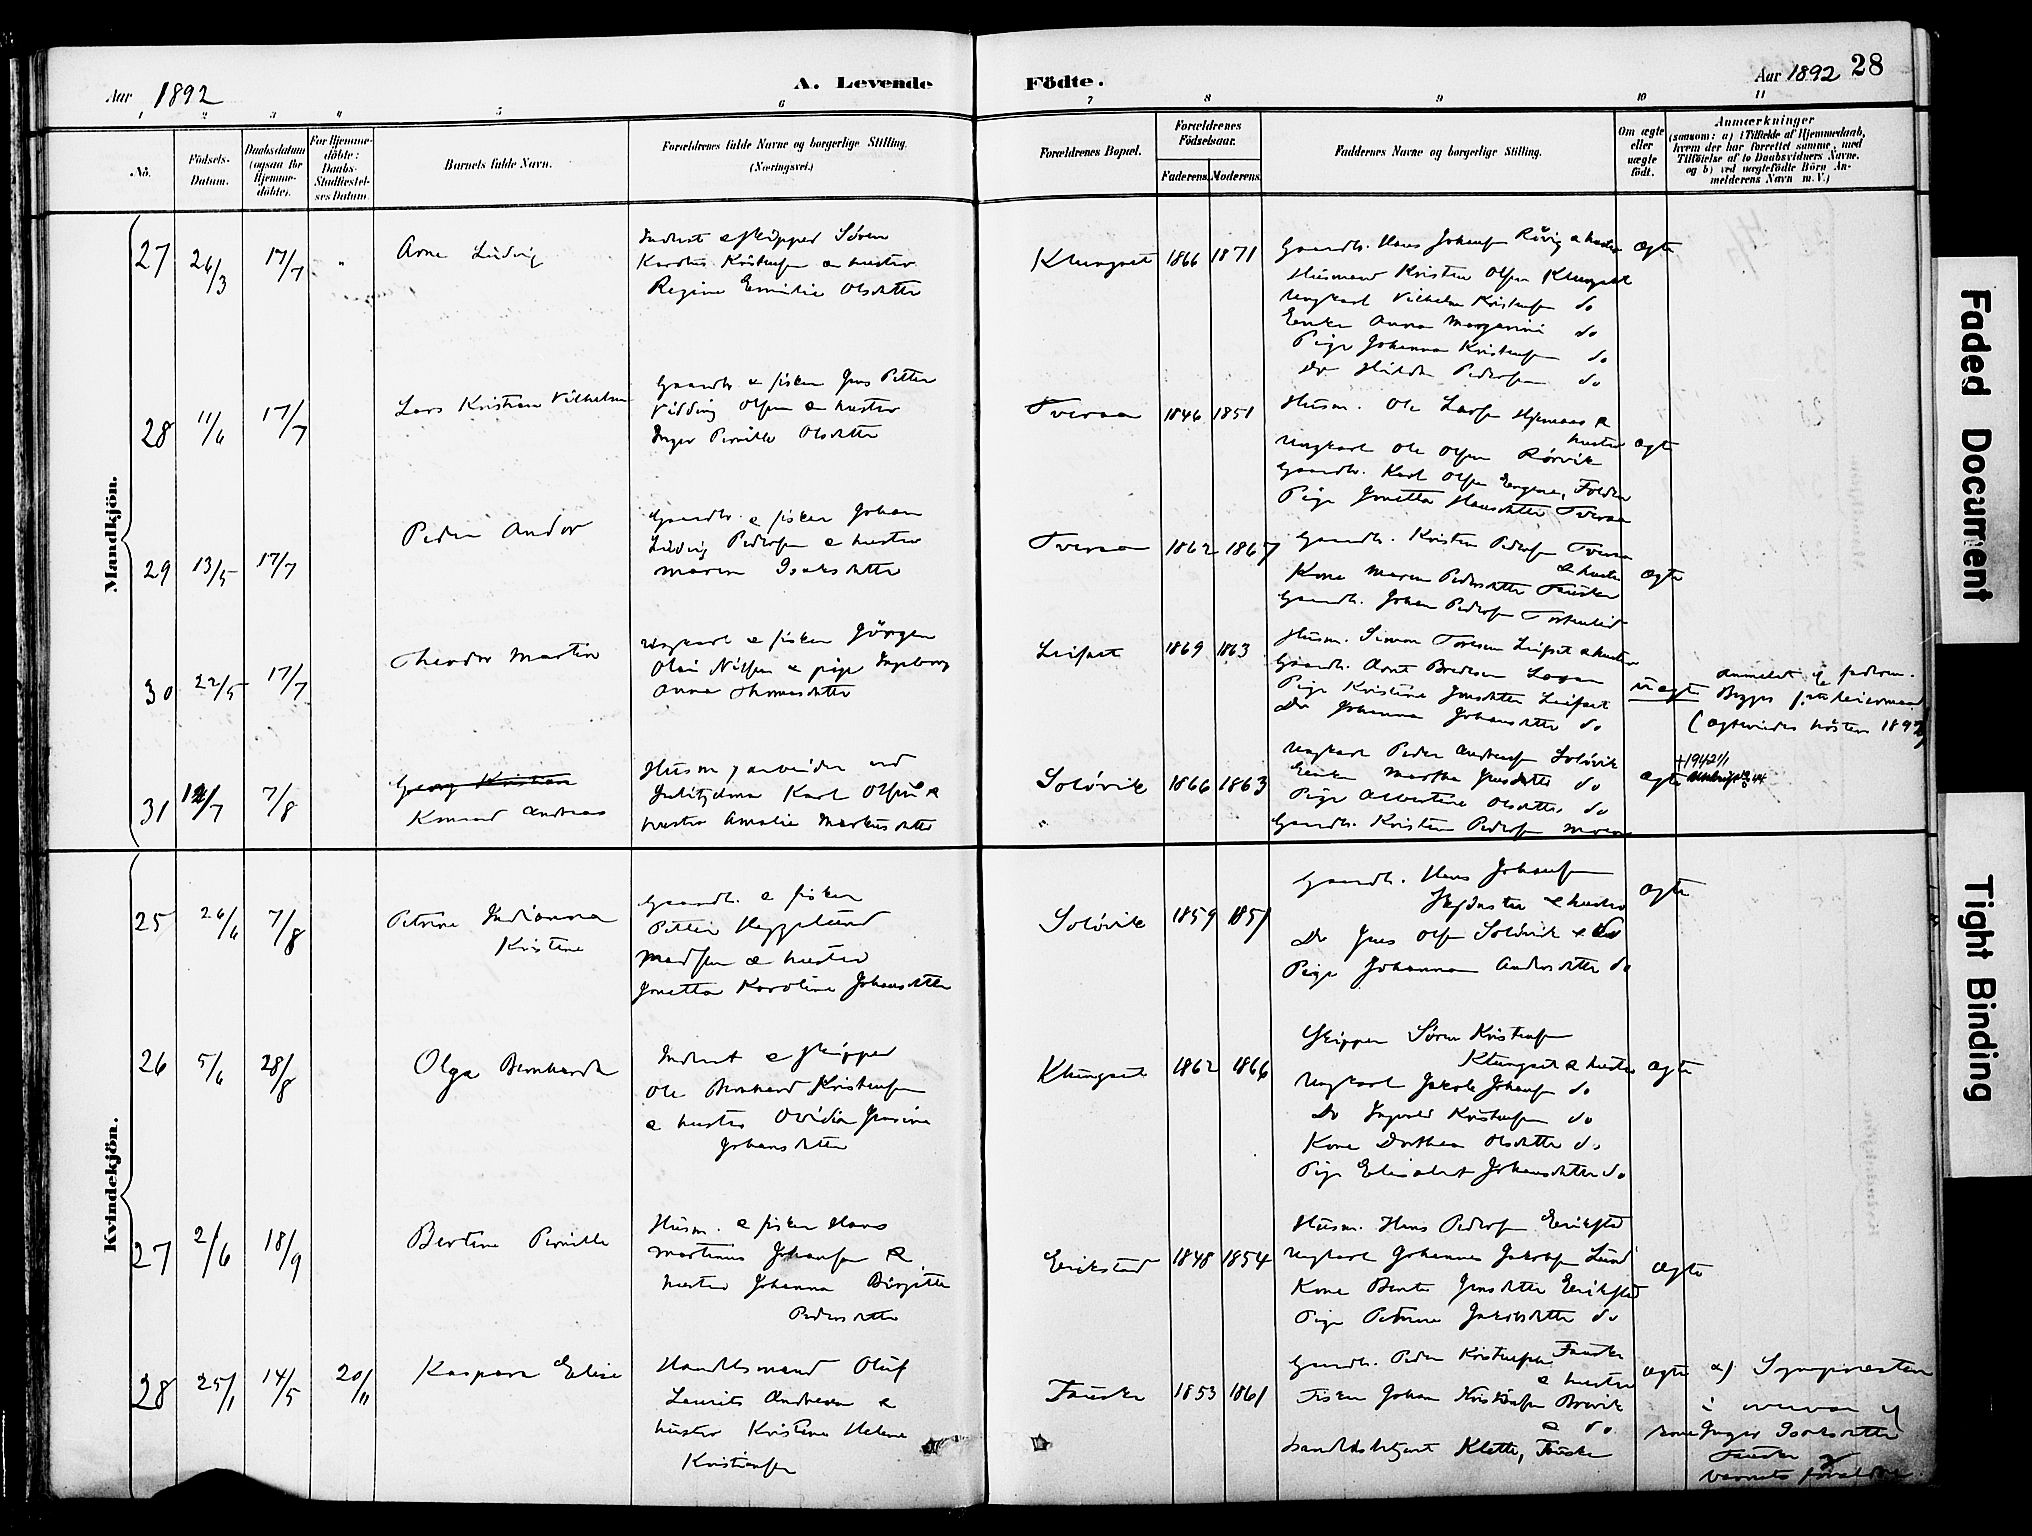 Aar 1892
A. Levende
Födte.
Aar 1892 28
1 2 3 4 5 6 7 8 9 10 11
No.
Födsels-
Datum.
Daabsdatum
(ogsaa for
Hjemme-
döbte).
For Hjemme-
döbte:
Daabs-
Stadfæstel-
ses Datum
Barnets fulde Navn.
Forældrenes fulde Navne og borgerlige Stilling.
(Næringsvei.)
Forældrenes Bopæl.
Forældrenes
Födselsaar.
Faderens. Moderens.
Faddernes Navne og borgerlige Stilling.
Om ægte
eller
uægte
födt.
Anmærkninger
(saasom: a) i Tilfælde af Hjemmedaab,
hvem der har forrettet samme, med
Tilföielse af to Daabsvidners Navne.
og b) ved uægtefödte Börn An-
melderens Navn m. V.)
Mandkjön.
27 26/3 17/7 "
Arne Ludvig
Inderst & skipper Søren
Kristensen & hustru
Regine Emilie Olsdatter
Klungset 1866 1871
Gaardb. Hans Johansen Røvig & hustru
Husmand Kristen Olsen Klungset
Ungkarl Vilhelm Kristensen do
Enke Anna Margarine do
Pige Johanna Kristensen do
Do Hilda Pedersen do
ægte
28 11/6 17/7
Lars Kristian Vilhelm
Gaardb. & fisker Jens Petter
Vidding Olsen & hustru
Inger Pernille Olsdatter
Tveraa 1846 1851
Husm. Ole Larsen Hjemaas &
hustru
Ungkarl Ole Olsen Rørvik
Gaardb. Karl Olsen Engene, Folden
Pige Jonetta Hansdatter Tveraa
ægte
29 13/5 17/7
Peder Andor
Gaardb. & fisker Johan
Ludvig Pedersen & hustru
Maren Isaksdatter
Tveraa 1862 1867
Gaardb. Kristen Pedersen Tveraa
& hustru
Kone Maren Pedersdatter Fauske
Gaardb. Johan Pedersen
ægte
30 22/5 17/7
Theodor Martin
Ungkarl & fisker Jörgen
Olai Nilsen & pige Ingeborg
Anna Thomasdatter
Leifset 1869 1863
Husm. Simon Toresen Leifset & hustru
Gaardb. Arnt Bredesen
Pige Kristine Jensdatter Leifset
Do Johanna Johansdatter do
uægte
anmeldt af faderen.
Begges
(ægtevies høsten 1892)
31 12/7 7/8
Georg Kristian
Konrad Andreas
Husm, arbeider ved
Sulitjelma Karl Olsen &
hustru Amalie Markusdatter
Soløvik 1866 1863
Ungkarl Peder Andreasen Soløvik
Enke Martha Jensdatter do
Pige Albertine Olsdatter do
Gaardb. Kristen Pedersen Moen
ægte
+1942 1/1
Kvindekjön.
25 26/6 7/8
Petrine Indianna
Kristine
Gaardb. & fisker
Petter Heggelund
Madsen & hustru
Jonetta Karoline Johansdatter
Soløvik 1859 1857
Gaardb. Hans Johansen
& hustru
Do Jens Olsen Soløvik & do
Pige Johanna Andersdatter do
ægte
26 5/6 28/8
Olga Bernharda
Inderst & skipper
Ole Bernhard Kristensen
& hustru Ovidia Jensine
Johansdatter
Klungset 1862 1866
Skipper Søren Kristensen
Klungset & hustru
Ungkarl Jakob Johansen do
Do Ingvald Kristensen do
Kone Dorthea Olsdatter do
Pige Elisabet Johansdatter do
ægte
27 2/6 18/9
Bertine Pernille
Husm. & fisker Hans
Martinus Johansen &
hustru Johanna Birgitte
Pedersdatter
Erikstad 1848 1854
Husm. Hans Pedersen Erikstad
Ungkarl Johannes Jakobsen Lund
Kone Bente Jensdatter Erikstad
Pige Petrine Jakobsdatter do
ægte
28 25/1 14/5 20/11
Kaspara Elise
Handelsmand Oluf
Laurits Andresen &
hustru Kristine Helene
Kristiansen
Fauske 1853 1861
Gaardb. Peder Kristensen Fauske
& hustru
Fisker Johan Kristensen Brevik
& do
Handelsbetjent Klette, Fauske
ægte
a) Sognepresten
i overvær af
kone Inger Isaksdatter
Fauske &
barnets forældre
Faded Document
Tight Binding